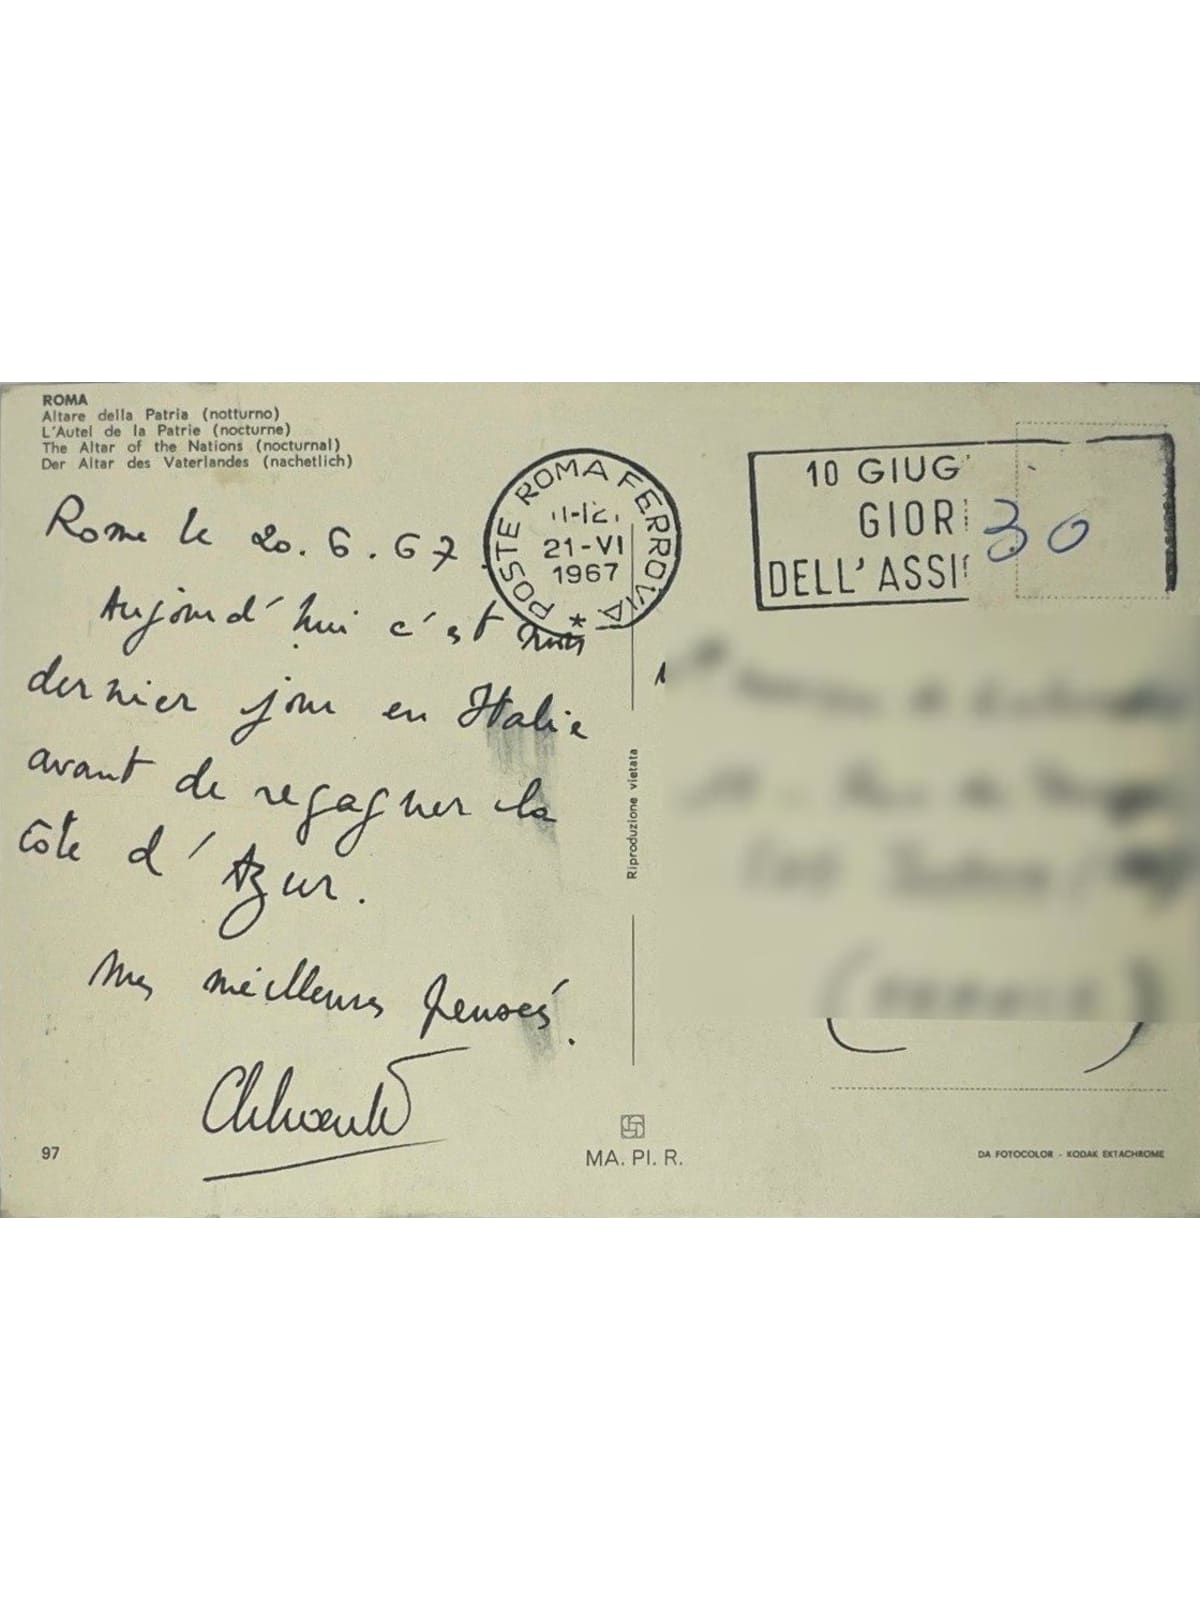 ROMA
Altare della Patria (notturno)
L'Autel de la Patrie (nocturne)
The Altar of the Nations (nocturnal)
Der Altar des Vaterlandes (nachetlich)
POSTE ROMA FERROVIA
11-12
21-VI
1967
*
10 GIUG
GIOR
DELL'ASSI
30
Rome le 20.6.67.
Aujourd'hui c'est mon
dernier jour en Italie
avant de regagner la
Côte d'Azur.
Mes meilleures pensés.
Riproduzione vietata
97
MA. PI. R.
DA FOTOCOLOR - KODAK EKTACHROME